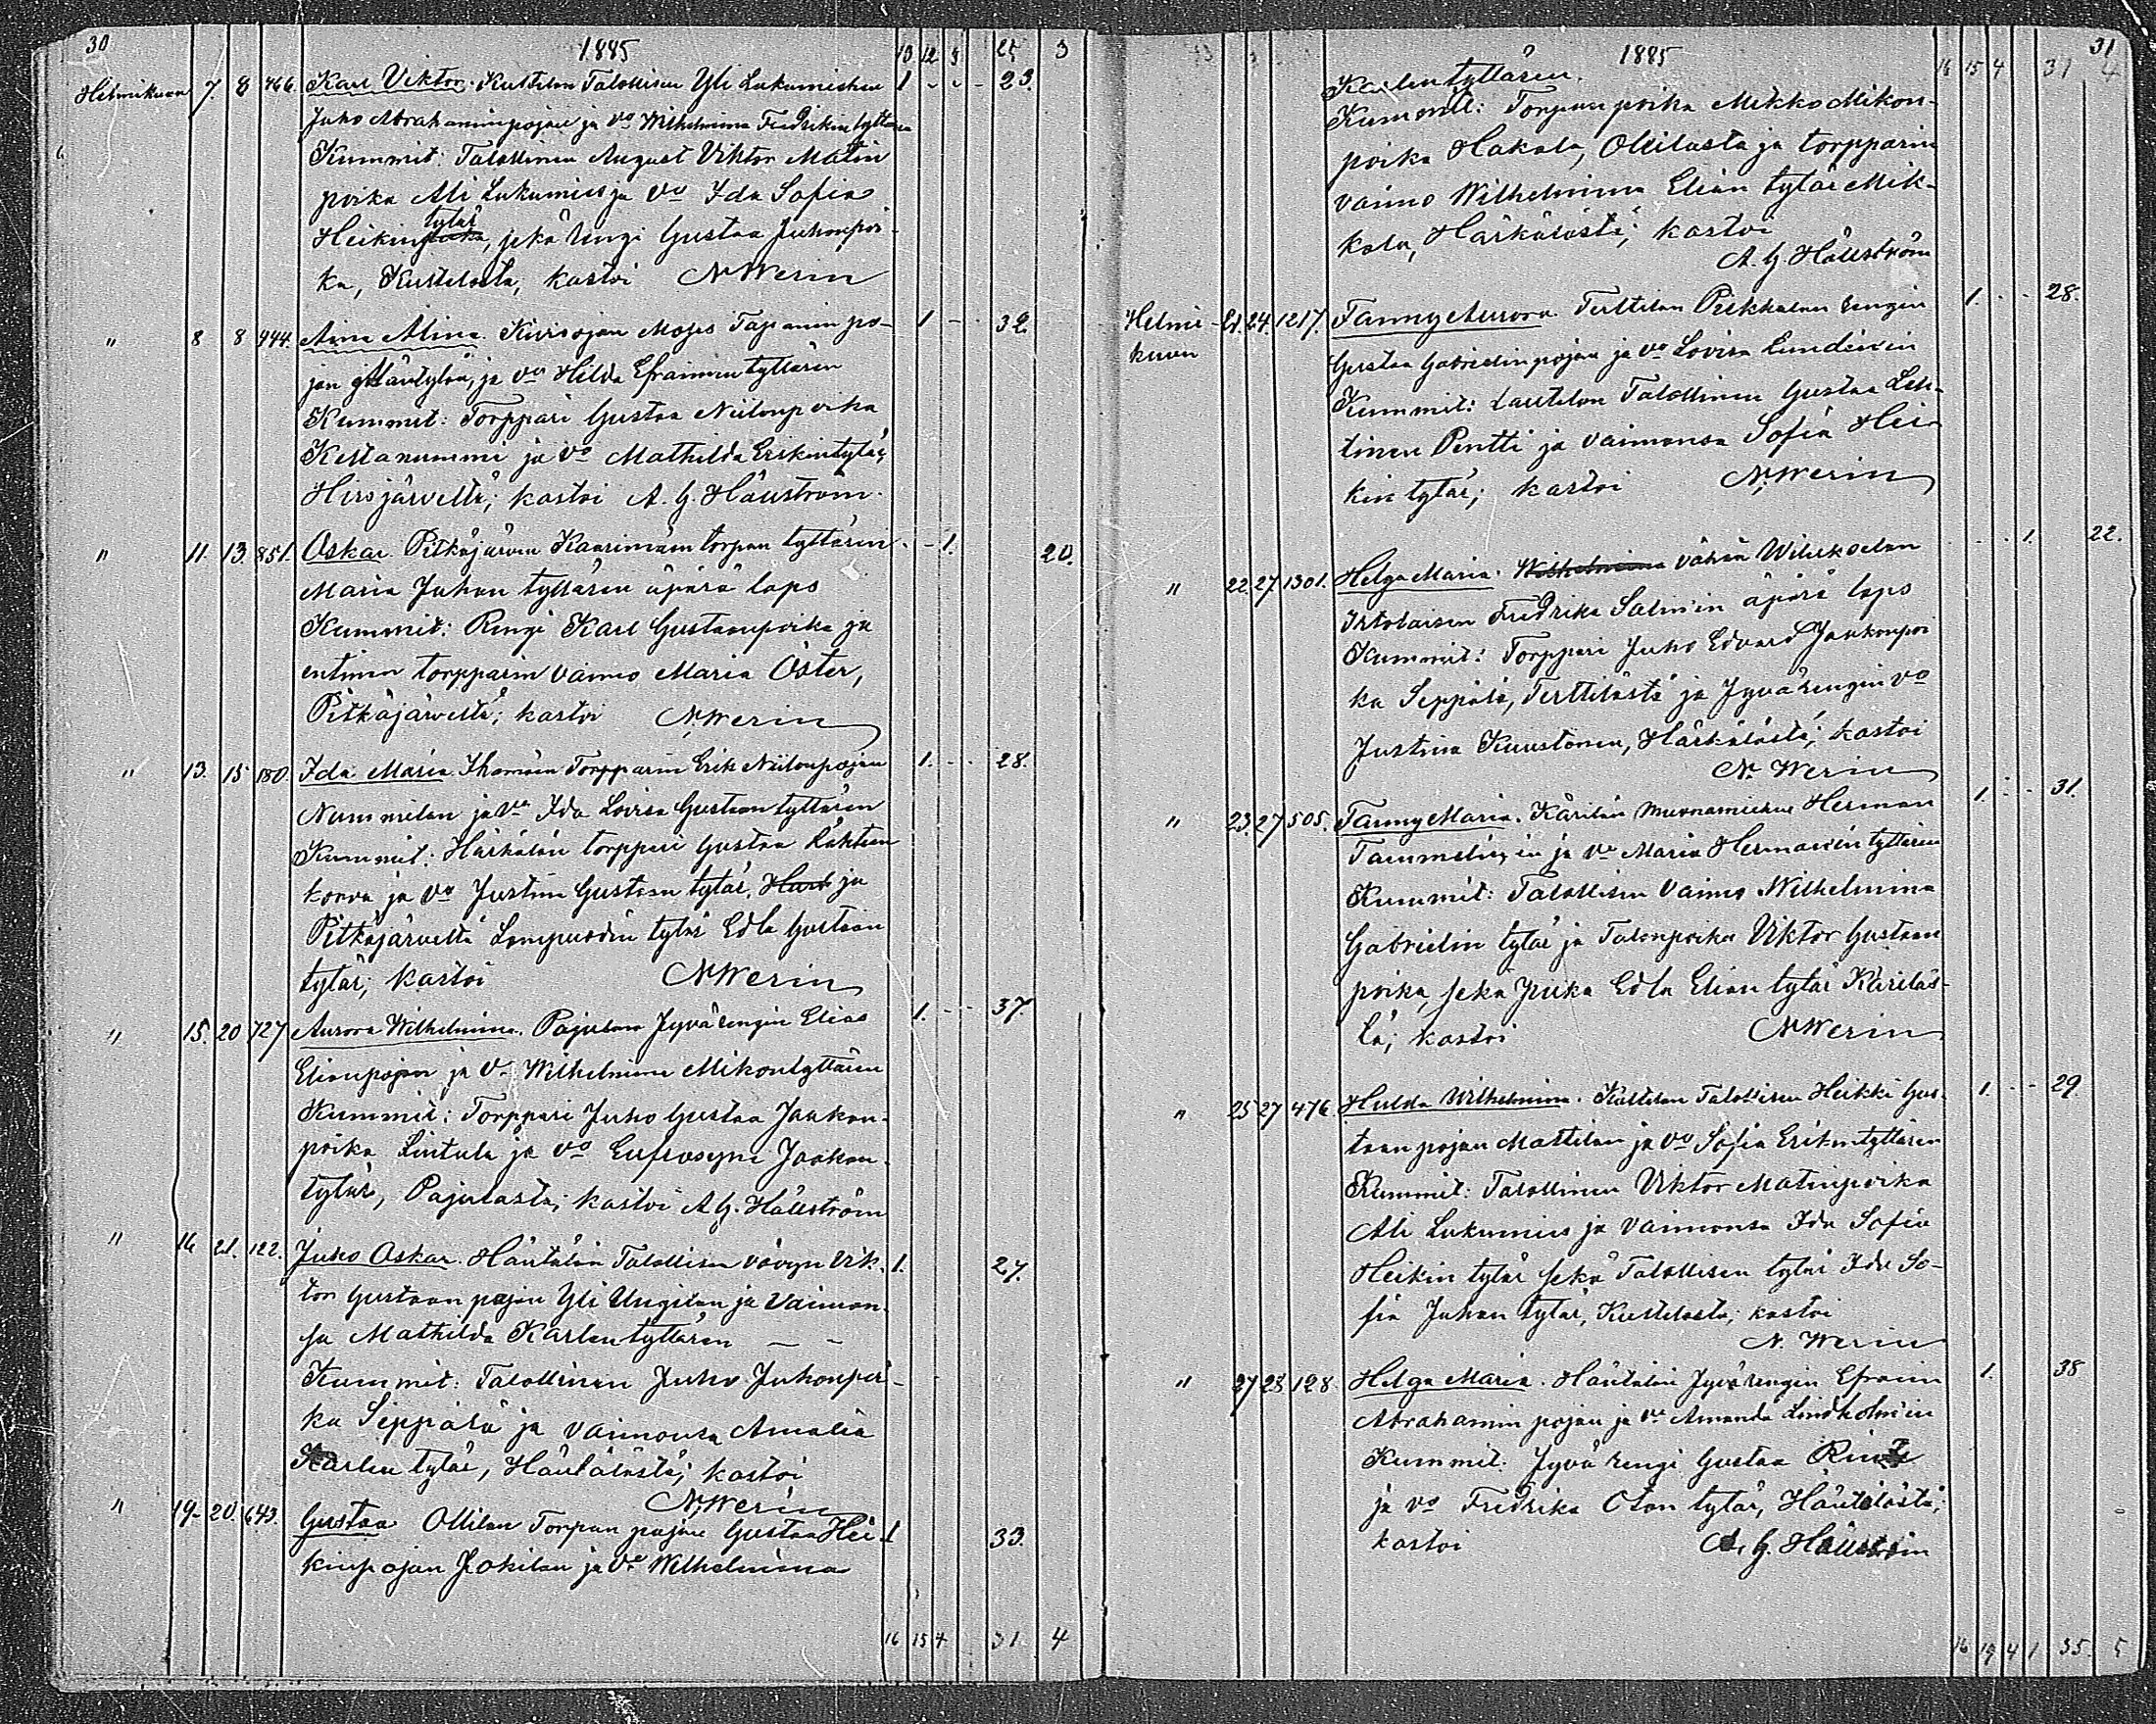 30 1885 10 12 3 25 3
Helmikuun 7. 8 766. Karl Viktor. Kuttilan Talollisen Yli Lukumiehen 1 - - - 23.
Juho Abrahaminpojan ja vo Wilhelmina Fredrikintyttären
Kummit: Talollinen August Viktor Matin
poika Ali Lukumies ja vo Ida Sofia
tytär
Heikin, sekä rengi Gustaa Juhonpoi-
ka, Kuttilasta; kastoi N. Werin
" 8 8 944. Aina Alina. Kivisojan Moses Tapanin po- 1 - - 32.
jan ja vo Hilda Efraimintyttären
Kummit: Torppari Gustaa Niilonpoika
Keltanummi ja vo Mathilda Erikintytär,
Hirsjärveltä; kastoi A. G. Hällström.
" 11. 13. 851. Oskar. Pitkäjärven Kaarimäen torpan tyttären - - 1. 20.
Maria Juhan tyttären äpärä laps
Kummit: Rengi Karl Gustaanpoika ja
entinen torpparin vaimo Maria Öster,
Pitkäjärveltä; kastoi N. Werin
" 13. 15 180. Ida Maria. Ihamäen Torpparin Erik Niilonpojan 1. - - 28.
Nummilan ja vo Ida Lovisa Gustaan tyttären
Kummit: Härkälän torppari Gustaa Lähteen
korva ja vo Justina Gustaan tytär, ja
Pitkäjärveltä Lampuodin tytär Edla Gustaan
tytär; kastoi N. Werin
" 15. 20 727 Aurora Wilhelmina. Pajulan Jyvärengin Elias 1. - - 37.
Elianpojan ja vo Wilhelmina Mikontyttären
Kummit: Torppari Juho Gustaa Jaakon-
poika Lintula ja vo Eufrosyne Jaakon-
tytär, Pajulasta; kastoi A. G. Hällström
" 16 21. 122. Juho Oskar. Häntälän Talollisen vävyn Vik- 1. 27.
tor Gustaan pojan Yli Uusgilan ja Vaimon-
sa Mathilda Karlen tyttären — —
Kummit: Talollinen Juho Juhonpoi-
ka Seppälä ja vaimonsa Amalia
Karlen tytär, Häntälästä; kastoi
N. Werin
" 19- 20. 643. Gustaa Ollilan Torpan pojan Gustaa Hei- 1 33.
kinpojan Jokilan ja vo Wilhelmina
16 15 4 31 4
1885 31
16 15 4 31 4
Karlen tyttären.
Kummit: Torpan poika Mikko Mikon-
poika Hakala, Ollilasta ja torpparin
vaimo Wilhelmina Elian tytär Mik-
kola, Härkälästä; kastoi
A. G. Hällström
Helmi- 21. 24. 1217. Fanny Aurora. Terttilän Pirkkalan rengin 1. - - 28.
kuun
Gustaa Gabrielinpojan ja vo Lovisa Lindénin
Kummit: Lautelan Talollinen Gustaa Leh-
tinen Pentti ja vaimonsa Sofia Hei-
kin tytär; kastoi N. Werin
" 22. 27. 1301. Helga Maria. Wilhelmina vähän Wilukselan - - - 1. 22.
Irtolaisen Fredrika Salmin äpärä laps
Kummit: Torppari Juho Edvard Jaakonpoi
ka Seppälä, Terttilästä ja Jyvärengin vo
Justina Kuustonen, Härkälästä; kastoi
N. Werin
" 23. 27 505. Fanny Maria. Kärilän Muonamiehen Herman 1. - - 31.
Tammelinin ja vo Maria Hermannin tyttären
Kummit: Talollisen vaimo Wilhelmina
Gabrielin tytär ja Talonpoika Viktor Gustaan
poika, sekä piika Edla Elian tytär Käriläs-
tä; kastoi N. Werin
" 25 27 476. Hulda Wilhelmina. Kuttilan Talollisen Heikki Gus- 1. - - 29.
taan pojan Mattilan ja vo Sofia Erikintyttären
Kummit: Talollinen Viktor Matinpoika
Ali Lukumies ja vaimonsa Ida Sofia
Heikin tytär sekä Talollisen tytär Ida So-
fia Juhan tytär, Kuttilasta; kastoi
N. Werin
" 27 28 128. Helga Maria. Häntälän Jyvärengin Efraim 1. 38
Abrahamin pojan ja vo Amanda Lindholmin
Kummit: Jyvä rengi Gustaa
ja vo Fredrika Oton tytär, Häntälästä;
kastoi A. G. Hällström
16 19 4 1 35. 5